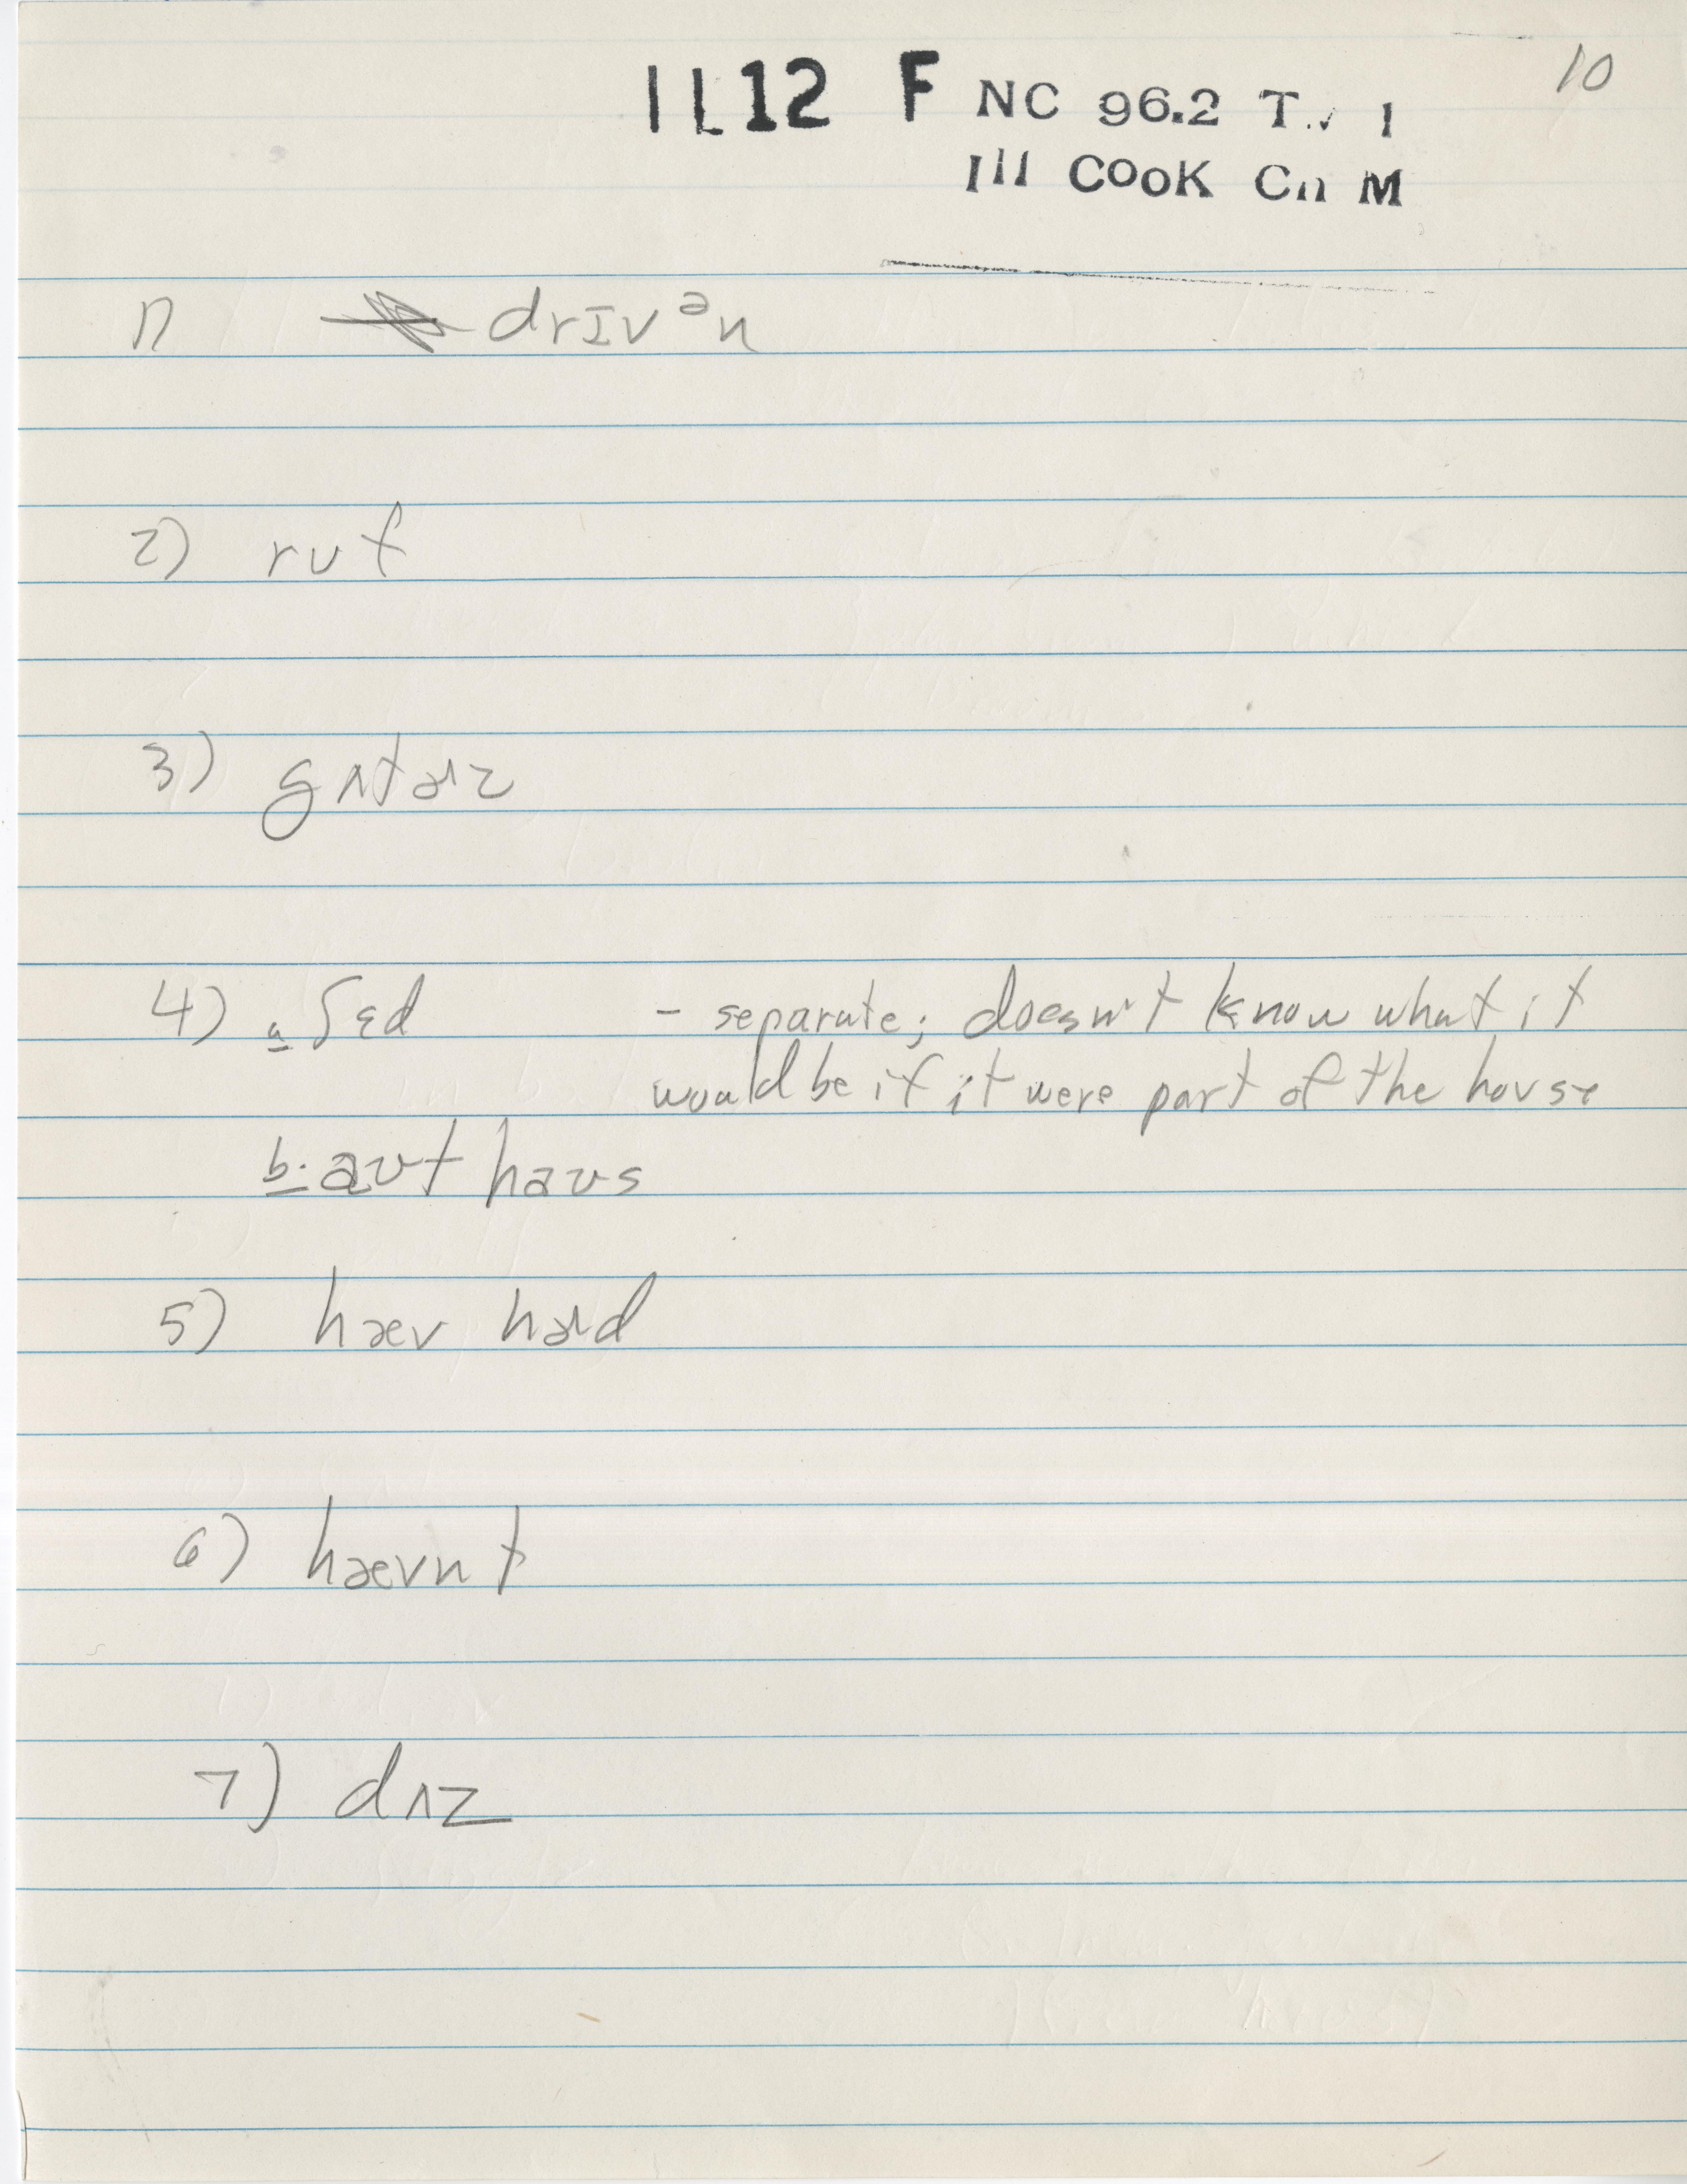 10
1L12 F NC 96.2 T. 1
Ill COOK Co M
1) drɪvᵊn
2) ruf
3) gʌtɚz
4) a ʃɛd - separate; doesn't know what it
would be if it were part of the house
b. aʊt haʊs
5) hæv hɚd
6) hævnt
7) dʌz